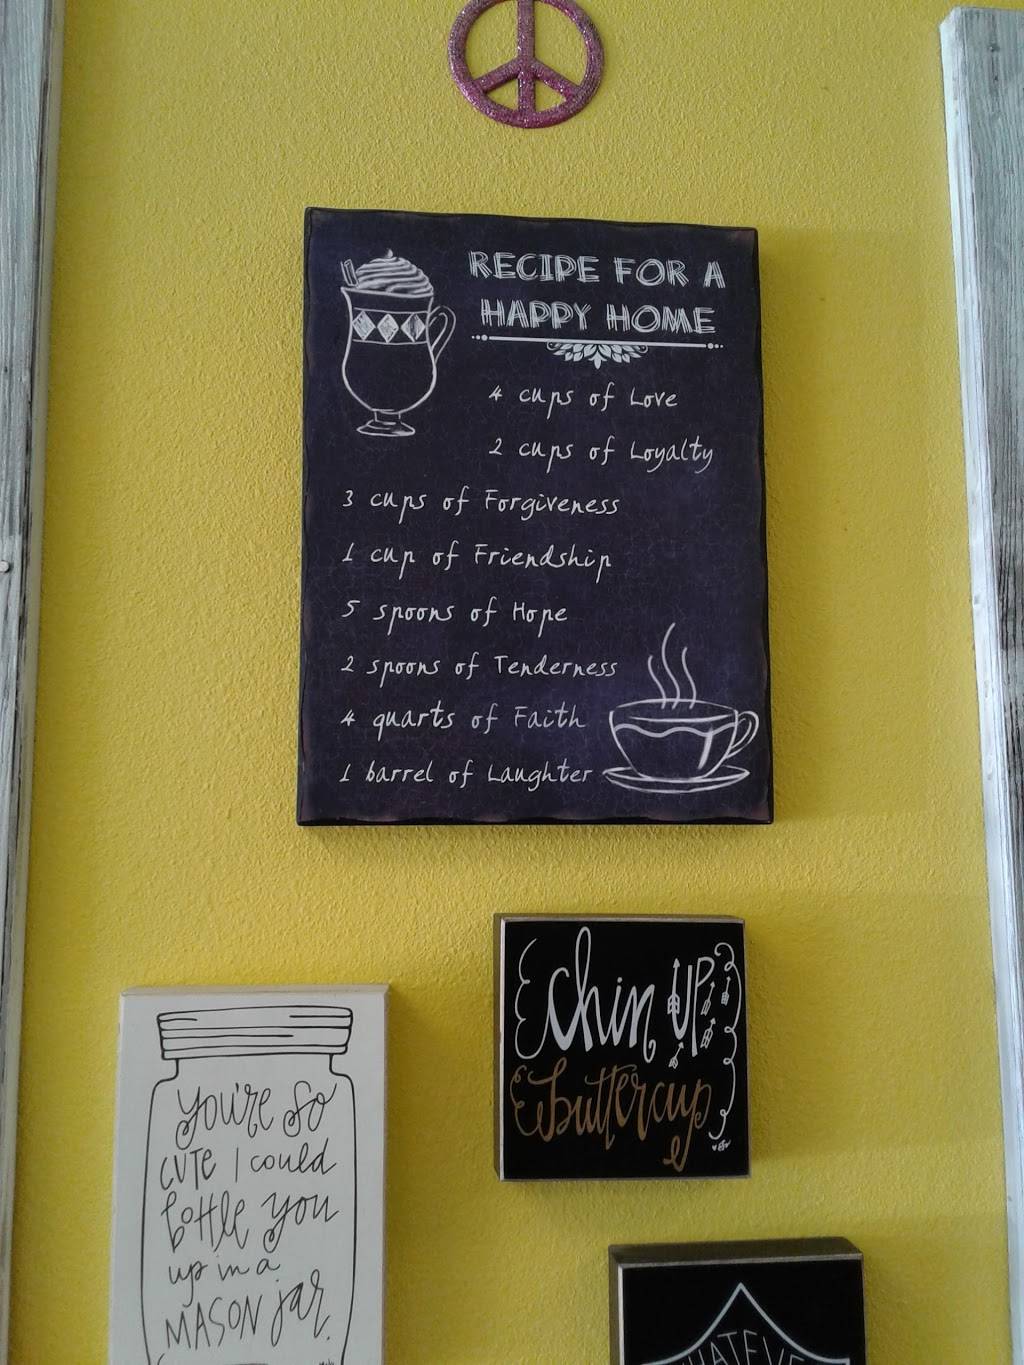 RECIPE FOR A
HAPPY HOME
4 cups of Love
2 cups of Loyalty
3 cups of Forgiveness
1 cup of Friendship
5 spoons of Hope
2 spoons of Tenderness
4 quarts of Faith
1 barrel of Laughter
chin UP
buttercup
you're so
CUTE I could
bottle you
up in a
MASON jar.
WHATEVER